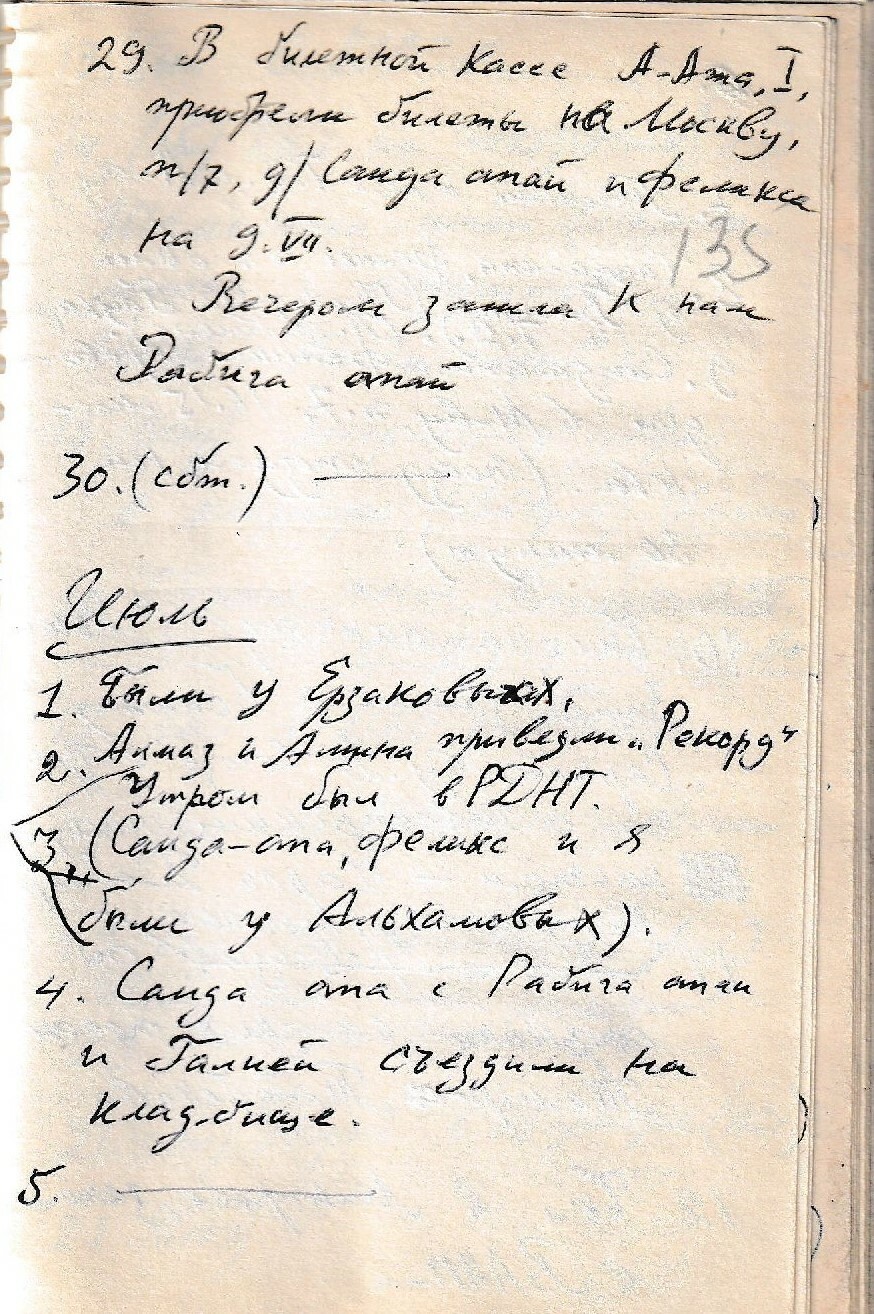 29. В билетной кассе А-Ата, I,
приобрели билеты на Москву,
п/7, д/ Саида апай и Феликса
на 9. VII.
135
Вечером зашла к нам
Рабига апай
30. (сбт.) —
Июль
1. Были у Ерзаковых.
2. Алмаз и Алина привезли „Рекорд“
Утром был в РДНТ.
3. (Саида-апа, Феликс и я
были у Альхамовых).
4. Саида апа с Рабига апаи
и Галией съездили на
кладбище.
5. —